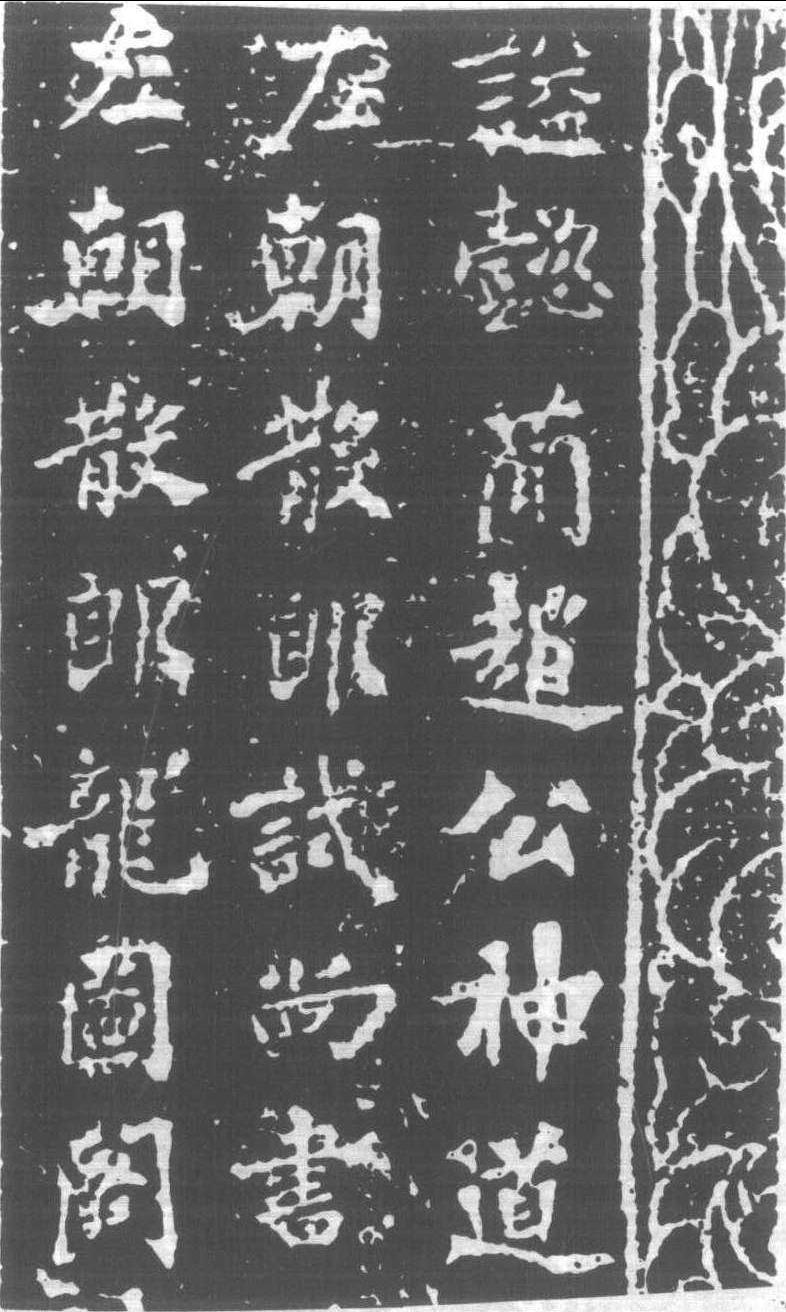 謚懿簡趙公神道
左朝散郎試尚書
左朝散郎龍圖閣